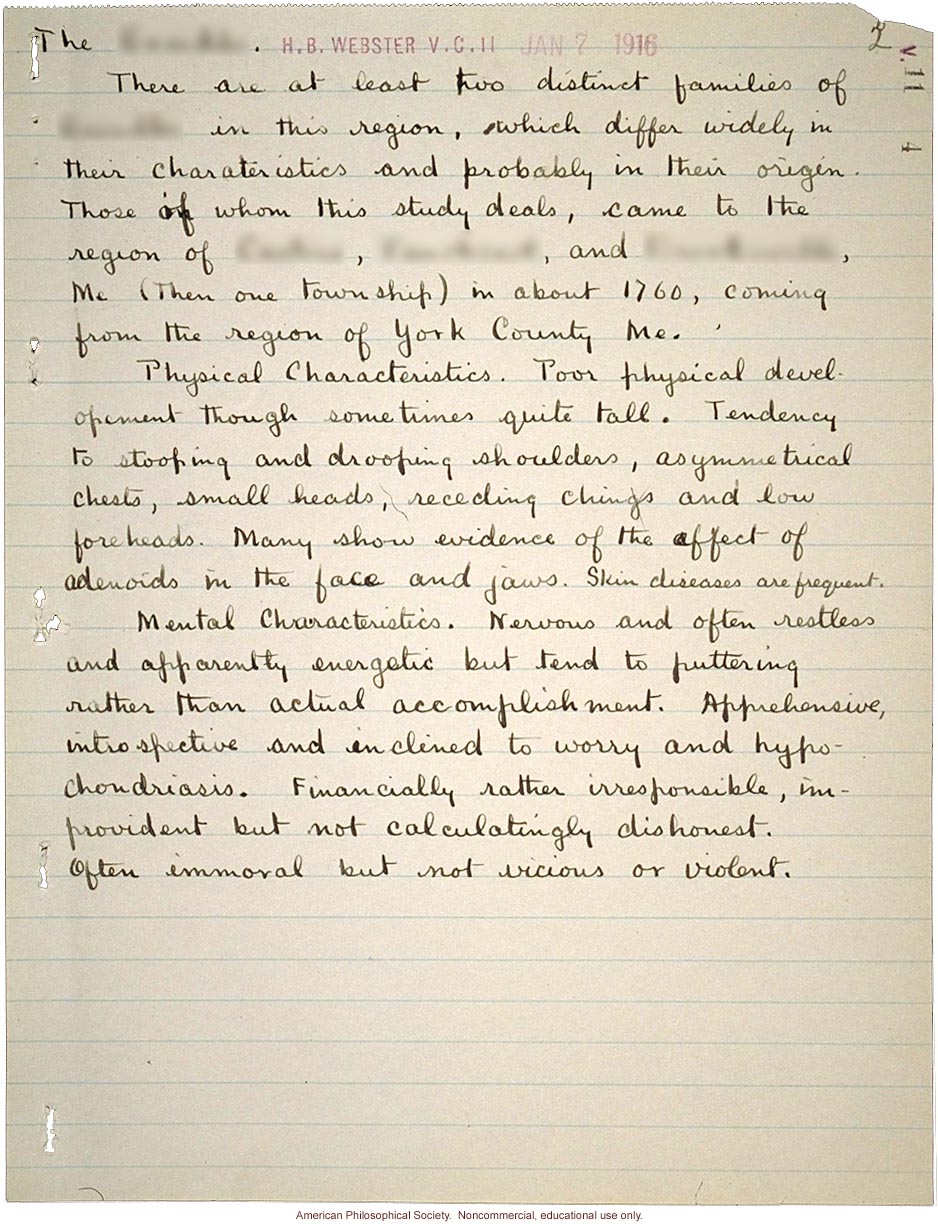 The . H.B. WEBSTER V.C.11 JAN 7 1916 2
V. 11 4
There are at least two distinct families of
in this region, which differ widely in
their charateristics and probably in their origin.
Those of whom this study deals, came to the
region of , , and ,
Me (Then one township) in about 1760, coming
from the region of York County Me.
Physical Characteristics. Poor physical devel-
opement though sometimes quite tall. Tendency
to stooping and drooping shoulders, asymmetrical
chests, small heads, receding chings and low
foreheads. Many show evidence of the affect of
adenoids in the face and jaws. Skin diseases are frequent.
Mental Characteristics. Nervous and often restless
and apparently energetic but tend to puttering
rather than actual accomplishment. Apprehensive,
introspective and inclined to worry and hypo-
chondriasis. Financially rather irresponsible, im-
provident but not calculatingly dishonest.
Often immoral but not vicious or violent.
American Philosophical Society. Noncommercial, educational use only.